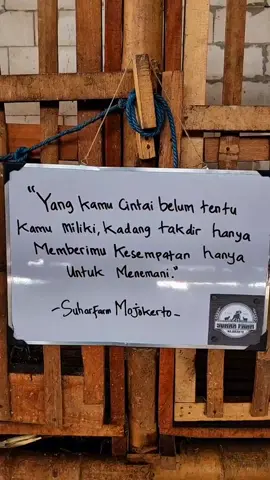 "Yang kamu Cintai belum tentu
kamu miliki, kadang takdir hanya
Memberimu Kesempatan hanya
Untuk Menemani."
- Suharfarm Mojokerto -